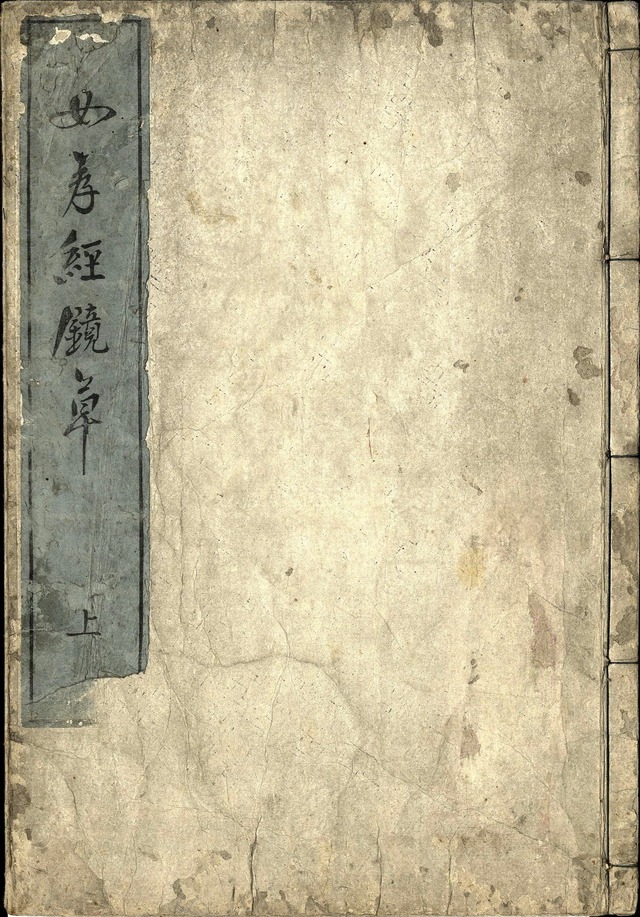 女孝經鏡草
上